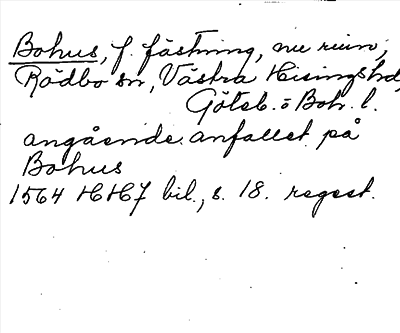 Bohus, f. fästning, nu ruin,
Rödbo sn, Västra Hisings hd,
Göteb. o Boh. l.
angående anfallet på
Bohus
1564 HH7 bil., s. 18. regest.